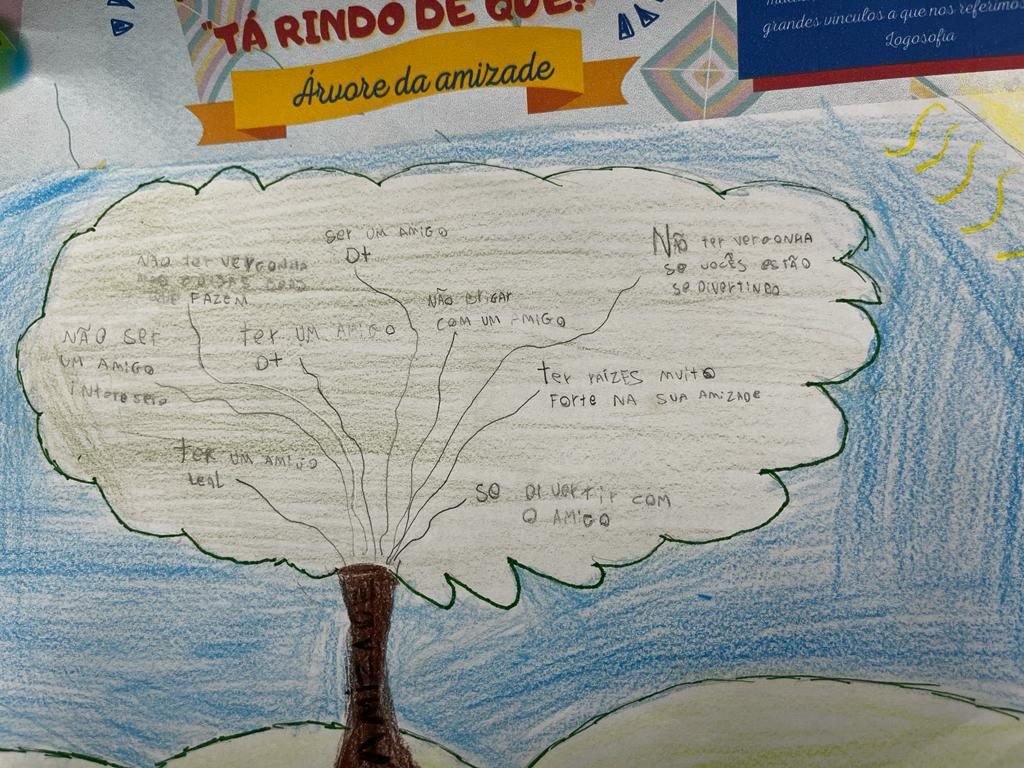 "TÁ RINDO DE QUÊ?
Árvore da amizade
grandes vínculos a que nos referimos
Logosofia
SER UM AMIGO
D+
NÃO TER VERGONHA
QUE FAZEM
NÃO TER VERGONHA
SE VOCÊS ESTÃO
SE DIVERTINDO
NÃO BRIGAR
COM UM AMIGO
NÃO SER
UM AMIGO
INTERESEIRO
TER UM AMIGO
D+
TER RAÍZES MUITO
FORTE NA SUA AMIZADE
TER UM AMIGO
LEAL
SE DIVERTIR COM
O AMIGO
AMIZADE